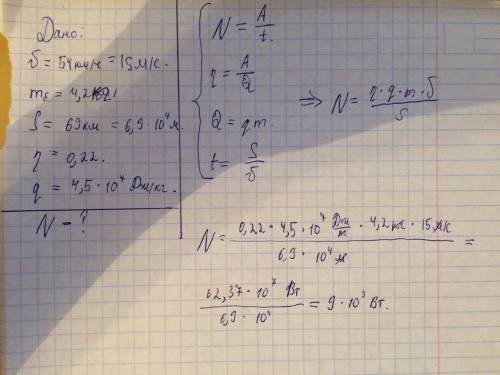 Дано:
υ = 54 км/ч = 15 м/с.
m₅ = 4,2 кг
S = 69 км = 6,9 · 10⁴ м.
η = 0,22.
q = 4,5 · 10⁷ Дж/кг.
N - ?
N = A/t.
η = A/Q
Q = qm.
t = S/υ
=> N = η · q · m · υ / S
N = 0,22 · 4,5 · 10⁷ Дж/м · 4,2 кг · 15 м/с / 6,9 · 10⁴ м =
62,37 · 10⁷ Вт / 6,9 · 10⁴ = 9 · 10³ Вт.